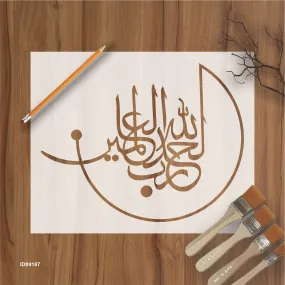 الحمد لله رب العالمين
ID#4167